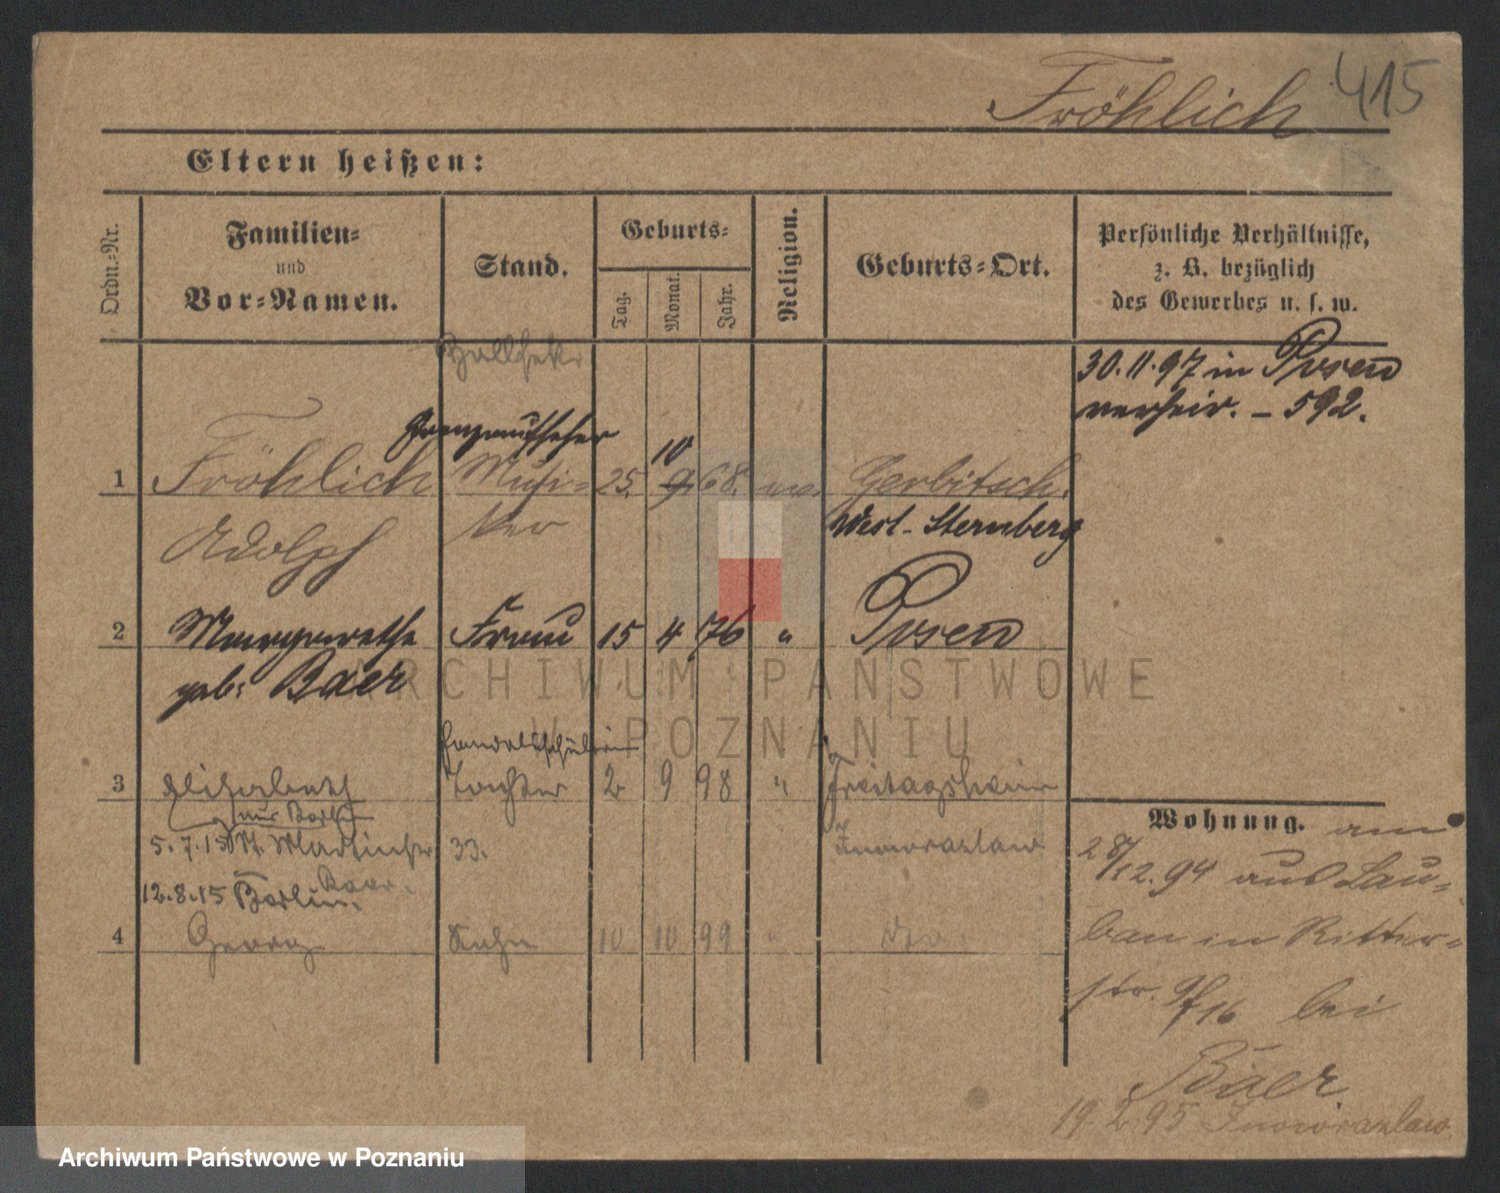 Fröhlich 415
Eltern heißen:
Ordn.-Nr.
Familien-
und
Vor-Namen.
Stand.
Geburts-
Tag.
Monat.
Jahr.
Religion.
Geburts-Ort.
Persönliche Verhältnisse,
z. B. bezüglich
des Gewerbes u. s. w.
30.11.97 in Posen
verheir. - 592.
Grenzaufseher
10
1 Fröhlich Musi- 25. 9. 68. ev. Gerbitsch.
Adolph ker West-Sternberg
2 Margarethe Frau 15 4 76 " Posen
geb: Baer
Handelsschülerin
3 Elisabeth Tochter 2 9 98 " Freitagsheim
aus Berlin
5.7.15 St. Martinstr 33. Inowrazlaw
12.8.15 Berlin.
4 Georg Sohn 10 10 99 "
Wohnung. am
28/12.94 aus Lau-
ban in Ritter-
str. 9/16 bei
Baer.
19.2.95 Inowrazlaw.
ARCHIWUM PAŃSTWOWE
W POZNANIU
Archiwum Państwowe w Poznaniu